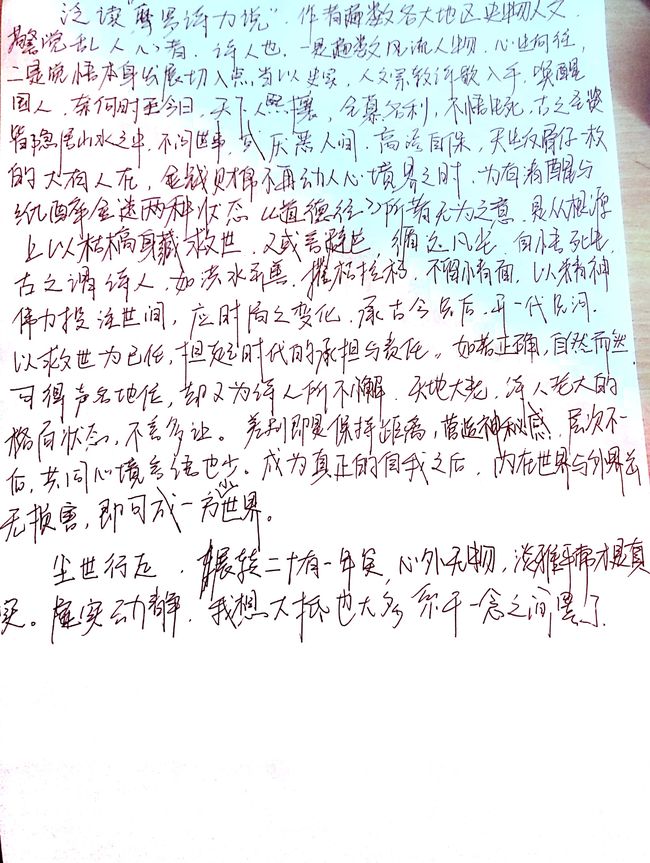 泛读“摩罗诗力说”，作者遍数各大地区史物人文，
人心者，诗人也，一是遍数风流人物，心生向往，
二是觉悟本身发展切入点当以史家，人文宗教诗歌入手，唤醒
国人，奈何时至今日，天下人熙攘，全慕名利，不悟生死，古之圣贤
皆隐居山水之中，不问世事，或厌恶人间，高洁自保，天生反骨仔一枚
的大有人在，金钱财帛不再动人心境界之时，为有清醒与
纸醉金迷两种状态《道德经》所着无为之意，是从根源
上以枯槁身藏救世，又或善避世，自悟死生，
古之谓诗人，如洪水，摧枯拉朽，不留情面，以精神
伟力投注世间，应时局之变化，承古今前后，开一代先河。
以救世为已任，担起时代的承担与责任。如若正确，自然而然
可得声名地位，却又为诗人所不解，天地大老，诗人老大的
格局状态，不言多让。差别即是保持距离，营造神秘感，层次不一
后，共同心境言语也少。成为真正的自我之后，内在世界与外界
无损害，即可成一方小世界。
尘世行走，辗转二十有一年矣，心外无物，淡雅平常才是真
实。虚实动静，我想大抵也大多系于一念之间罢了。